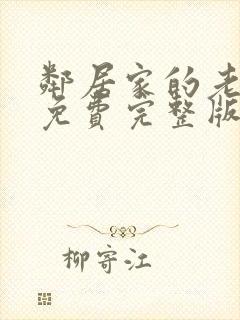 鄰居家的老
免費完整版
柳寄江